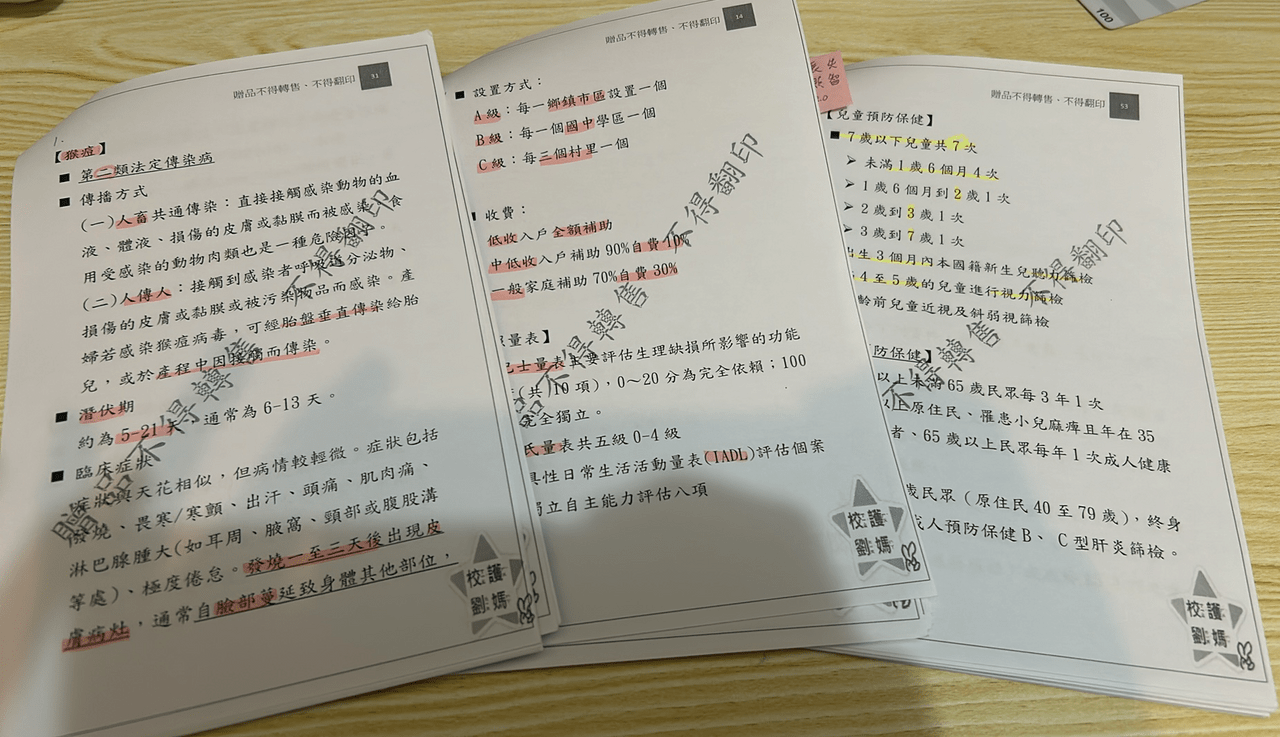 贈品不得轉售‧不得翻印 31
1.
【猴痘】
■ 第二類法定傳染病
■ 傳播方式
(一)人畜共通傳染：直接接觸感染動物的血
液、體液、損傷的皮膚或黏膜而被感染，食
用受感染的動物肉類也是一種危險因子。
(二)人傳人：接觸到感染者呼吸道分泌物、
損傷的皮膚或黏膜或被污染物品而感染。產
婦若感染猴痘病毒，可經胎盤垂直傳染給胎
兒，或於產程中因接觸而傳染。
■ 潛伏期
約為5-21天，通常為6-13天。
■ 臨床症狀
症狀與天花相似，但病情較輕微。症狀包括
發燒、畏寒/寒顫、出汗、頭痛、肌肉痛、
淋巴腺腫大(如耳周、腋窩、頸部或腹股溝
等處)、極度倦怠。發燒一至三天後出現皮
膚病灶，通常自臉部蔓延致身體其他部位，
贈品不得轉售 不得翻印
校護
劉媽
贈品不得轉售‧不得翻印 14
■ 設置方式：
A級：每一鄉鎮市區設置一個
B級：每一個國中學區一個
C級：每三個村里一個
收費：
低收入戶全額補助
中低收入戶補助90%自費10%
一般家庭補助70%自費30%
量表】
氏量表主要評估生理缺損所影響的功能
(共10項)，0～20分為完全依賴；100
完全獨立。
氏量表共五級0-4級
性日常生活活動量表(IADL)評估個案
獨立自主能力評估八項
品不得轉售 不得翻印
校護
劉媽
贈品不得轉售‧不得翻印 53
【兒童預防保健】
■ 7歲以下兒童共7次
➢ 未滿1歲6個月4次
➢ 1歲6個月到2歲1次
➢ 2歲到3歲1次
➢ 3歲到7歲1次
出生3個月內本國籍新生兒聽力篩檢
4至5歲的兒童進行視力篩檢
齡前兒童近視及斜弱視篩檢
預防保健】
以上未滿65歲民眾每3年1次
以上原住民、罹患小兒麻痺且年在35
者、65歲以上民眾每年1次成人健康
歲民眾（原住民40至79歲），終身
成人預防保健B、C型肝炎篩檢。
不得轉售 不得翻印
校護
劉媽
100